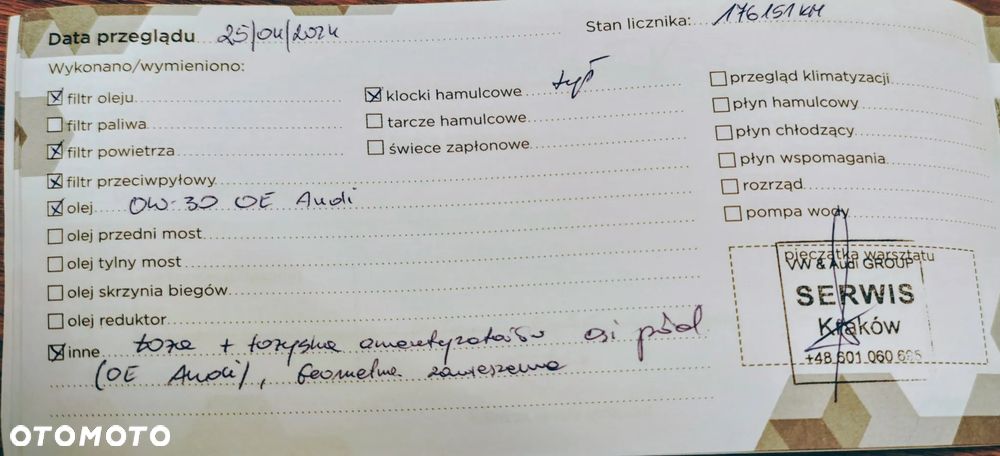 Data przeglądu 25/04/2024 Stan licznika: 176151 KM
Wykonano/wymieniono:
filtr oleju
filtr paliwa
filtr powietrza
filtr przeciwpyłowy
olej 0W-30 OE Audi
olej przedni most
olej tylny most
olej skrzynia biegów
olej reduktor
inne łoża + łożyska amortyzatorów osi przód
(OE Audi), Geometria zawieszenia
klocki hamulcowe tył
tarcze hamulcowe
świece zapłonowe
przegląd klimatyzacji
płyn hamulcowy
płyn chłodzący
płyn wspomagania
rozrząd
pompa wody
pieczątka warsztatu
VW & Audi GROUP
SERWIS
Kraków
+48 601 060 695
OTOMOTO